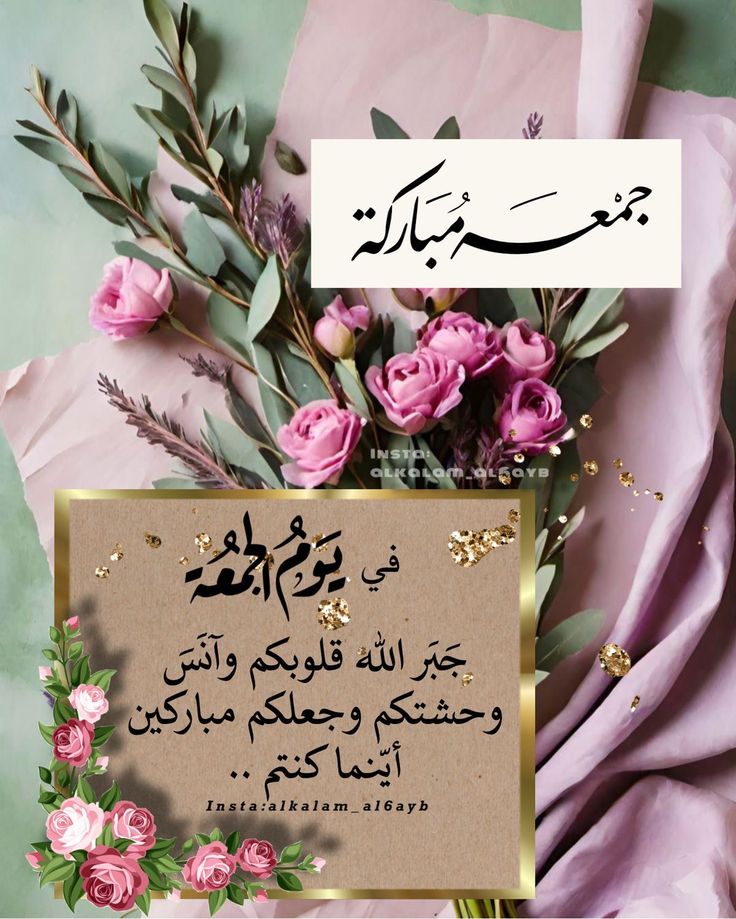 جمْعـه مُبَاركة
Insta:
alkalam_al6ayb
في يَوْمُ الجمُعُة
جَبَر الله قلوبكم وآنَسَ
وحشتكم وجعلكم مباركين
أيّنما كنتم ..
Insta:alkalam_al6ayb